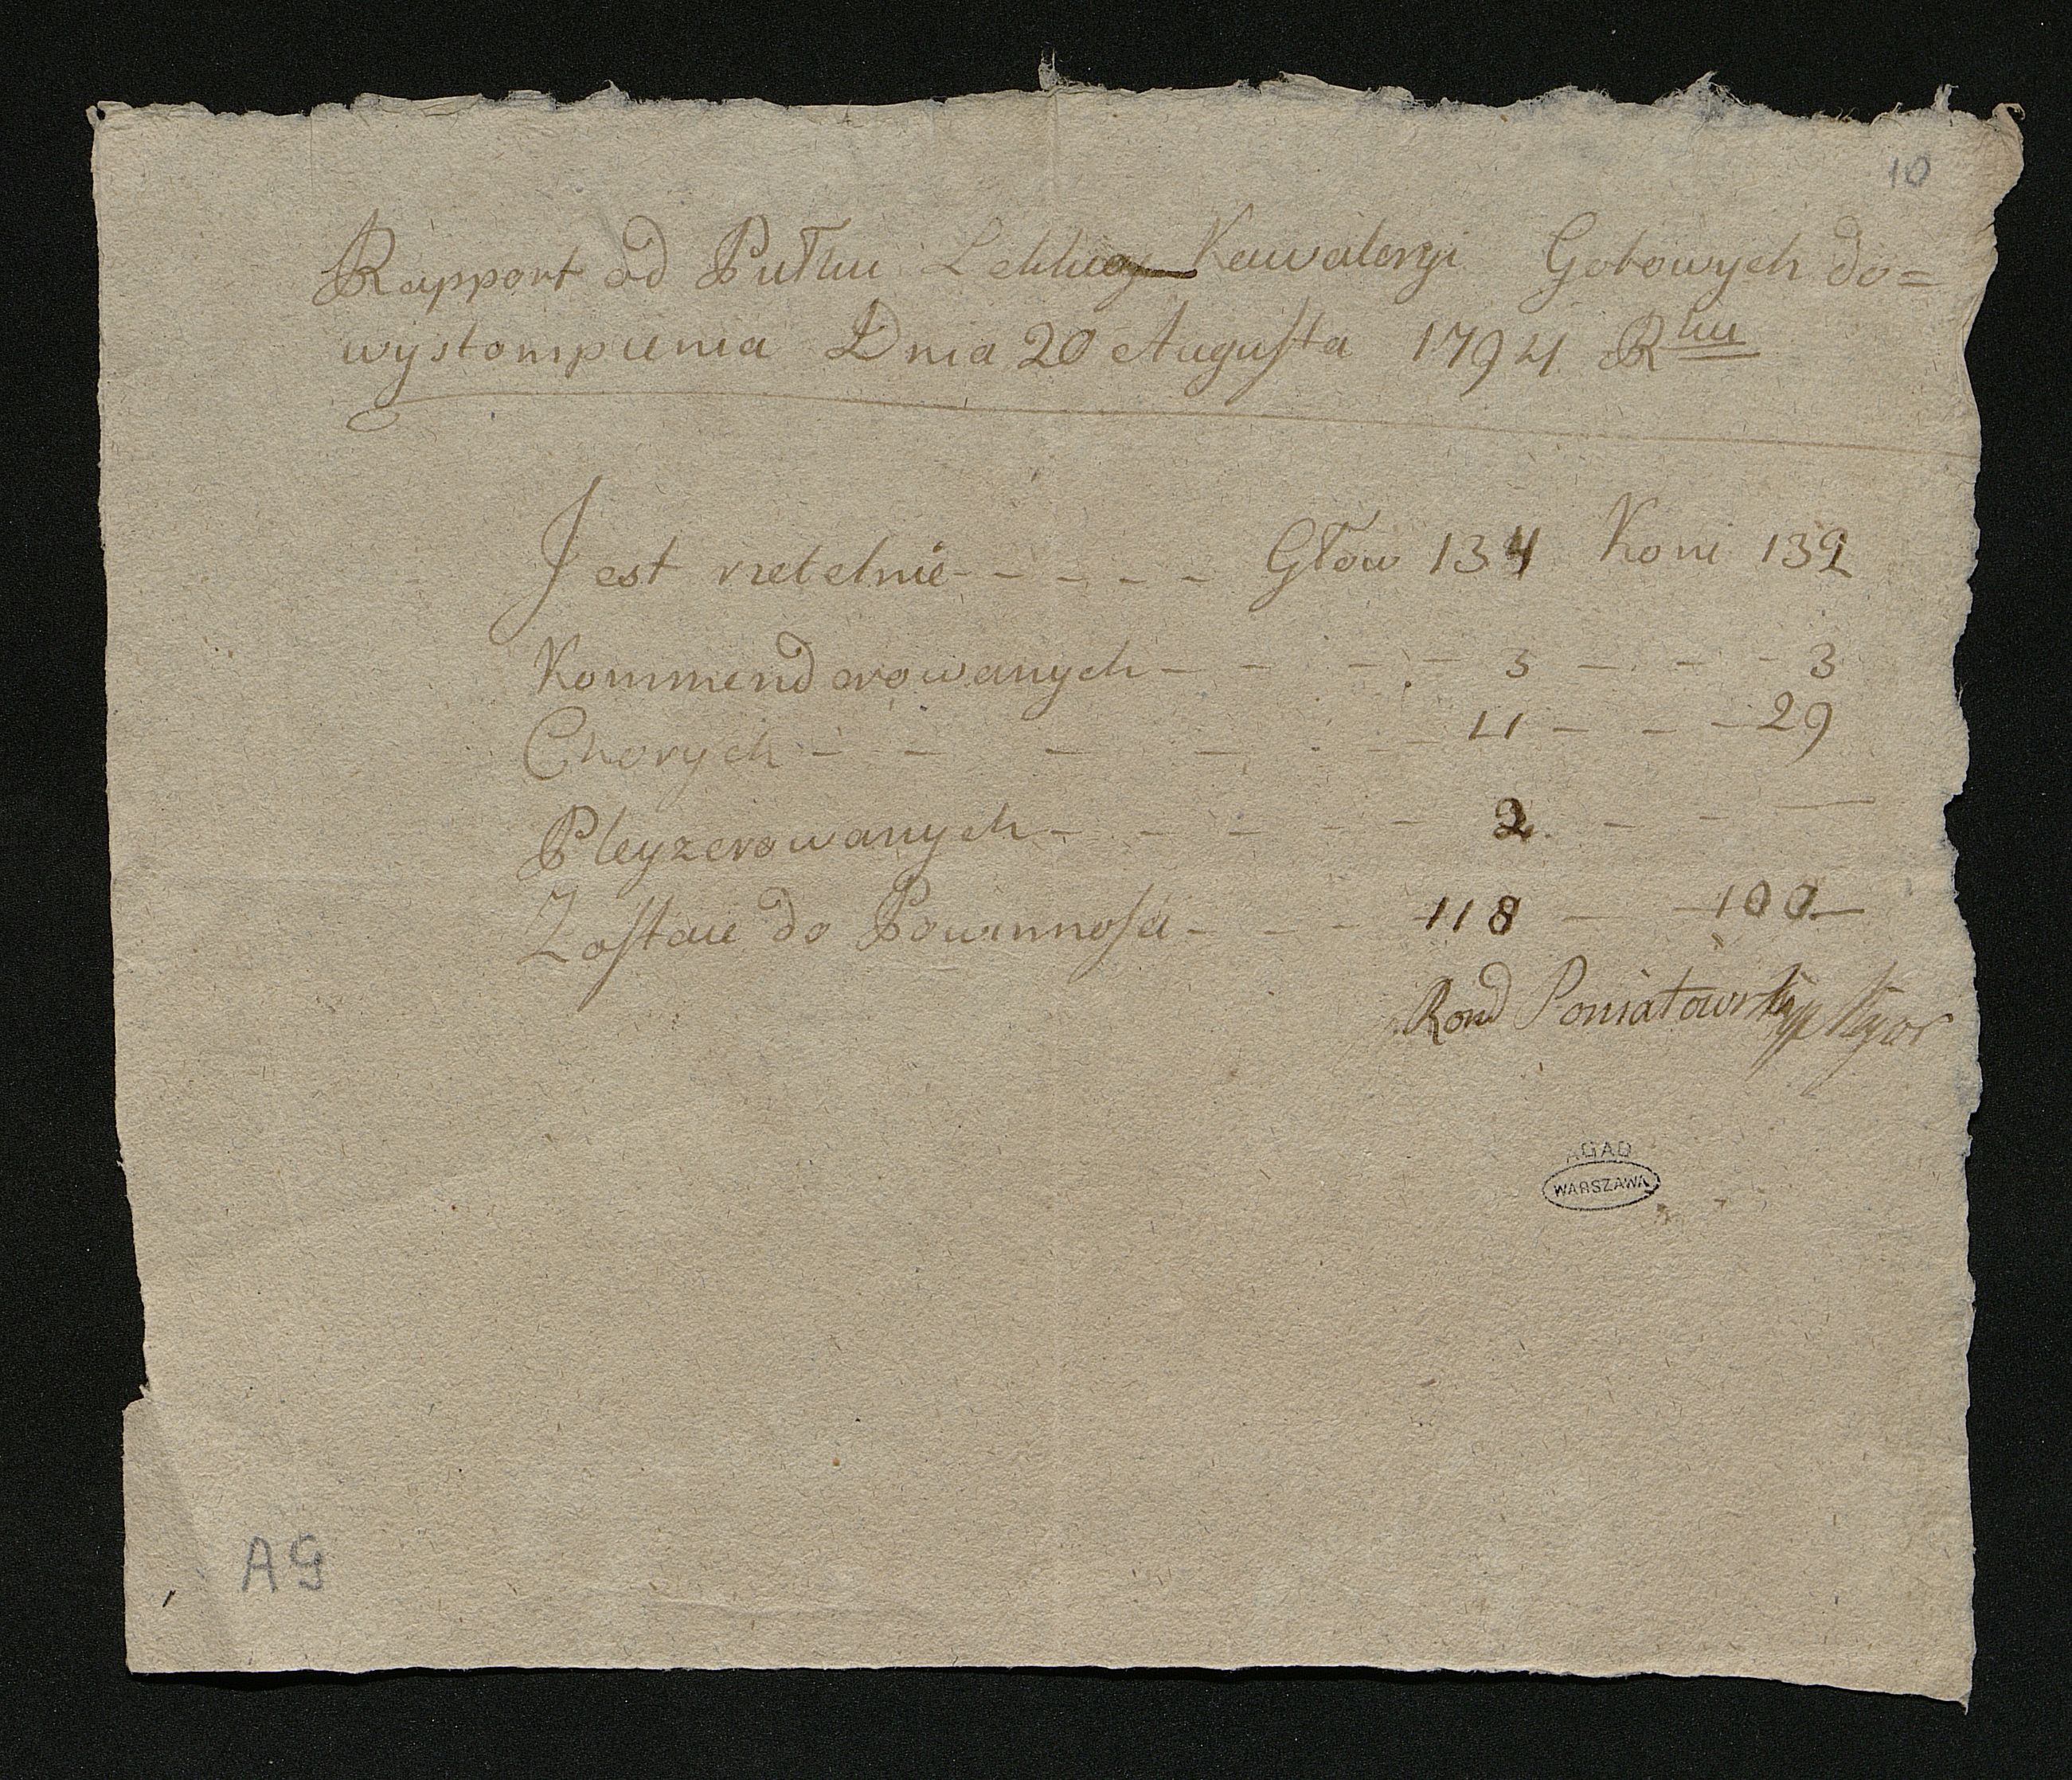 10
Rapport od Pułku Lekkiey Kawaleryi Gotowych do=
wystompienia Dnia 20 Augusta 1794 Rku
Jest rzetelnie - - - - - Głow 134 Koni 132
Kommenderowanych - - - - 3 - - - 3
Chorych - - - - - - 11 - - - 29
Pleyzerowanych - - - - - 2. - - -
Zostaie do Powinnosci - - - 118 - - 100 -
Poniatowski
AGAD
WARSZAWA
AG